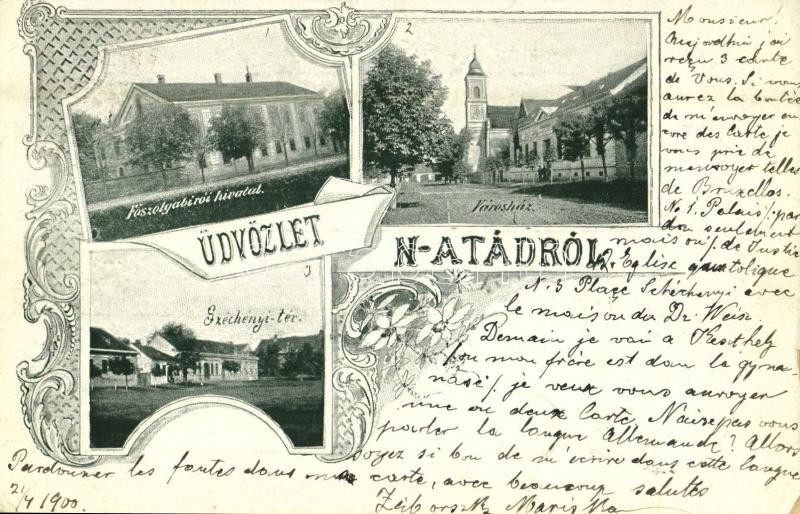 1
2
Főszolgabirói hivatal.
Városház.
ÜDVÖZLET
N-ATÁDRÓL
3
Széchenyi-tér.
Monsieur!
Aujordhui j'ai
reçu 3 carte
de Vous. Si vous
aurez la bontée
de m'envoyer en
core des Carte je
vous prie de
m'envoyer telles
de Bruxelles.
No 1. Palais /:par
don seulement
maison:/ de Justic
2. Eglise catolique
N. 3 Place Schéchenyi avec
le maison du Dr Weisz
Demain je vai à Keszthely
/:ou mon frère est dans le gym
nase/: je veux vous anvoyer
une ou deux Carte. N'aisepas vous
parler la langue Allemande? Allors
soyez si bon de m'écrire dans cette langue
Pardonner les fautes dans ma carte, avec beaucoup salutes
21/4 1900.
Mariska